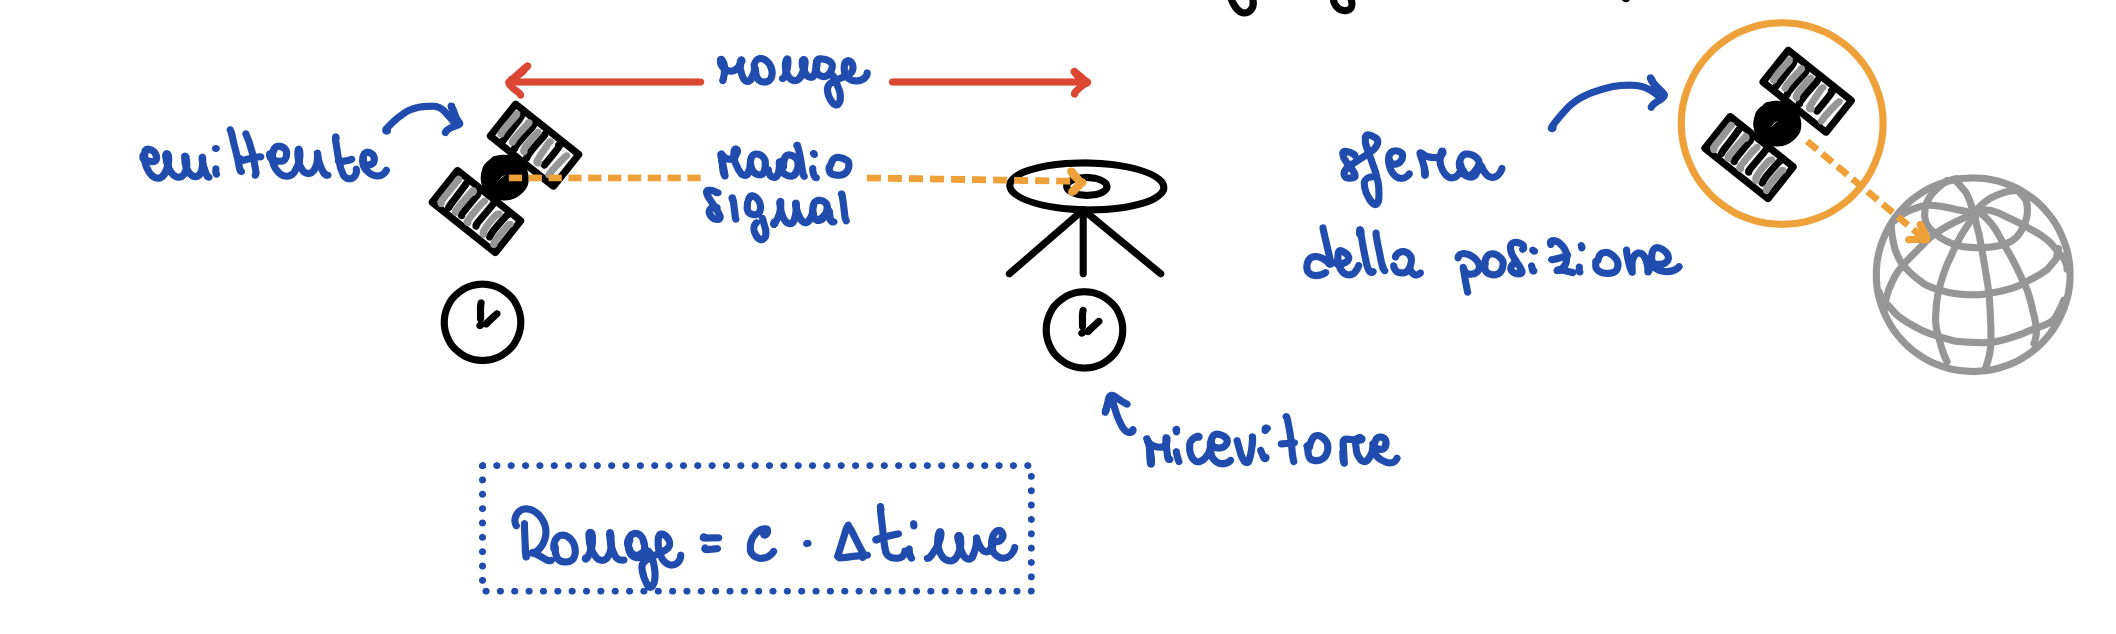 range
emittente
radio
signal
sfera
della posizione
ricevitore
Range = c · Δtime